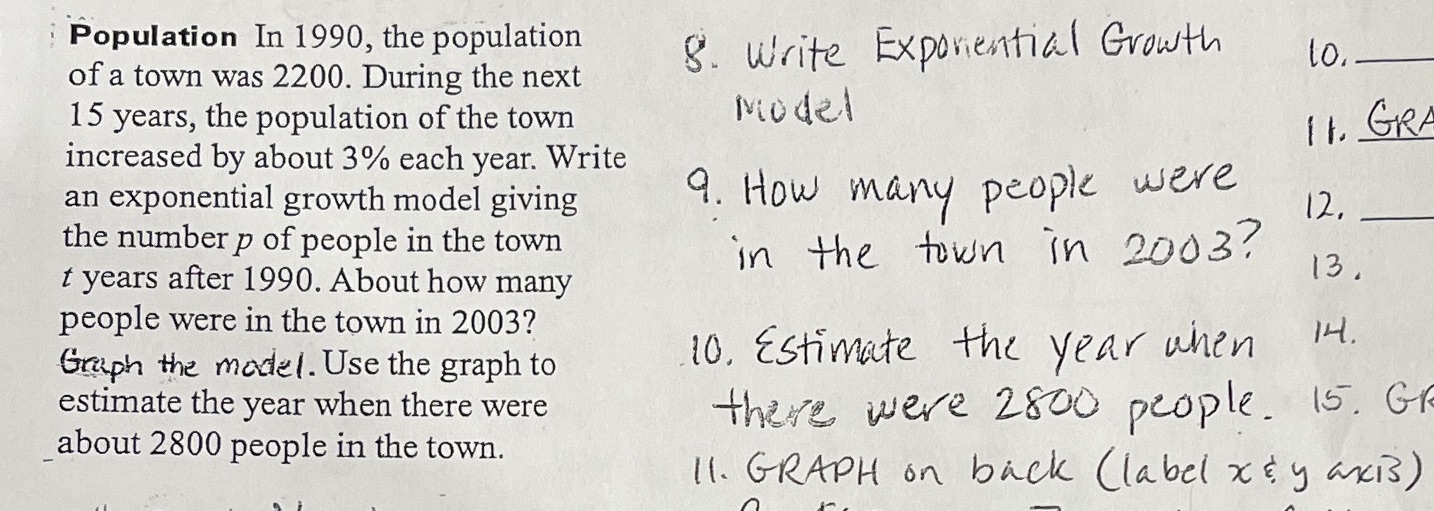 Population In 1990, the population
of a town was 2200. During the next
15 years, the population of the town
increased by about 3% each year. Write
an exponential growth model giving
the number p of people in the town
t years after 1990. About how many
people were in the town in 2003?
Graph the model. Use the graph to
estimate the year when there were
about 2800 people in the town.
8. Write Exponential Growth
Model
9. How many people were
in the town in 2003?
10. Estimate the year when
there were 2800 people.
11. GRAPH on back (label x & y axis)
10.
11. GRA
12.
13.
14.
15. GR